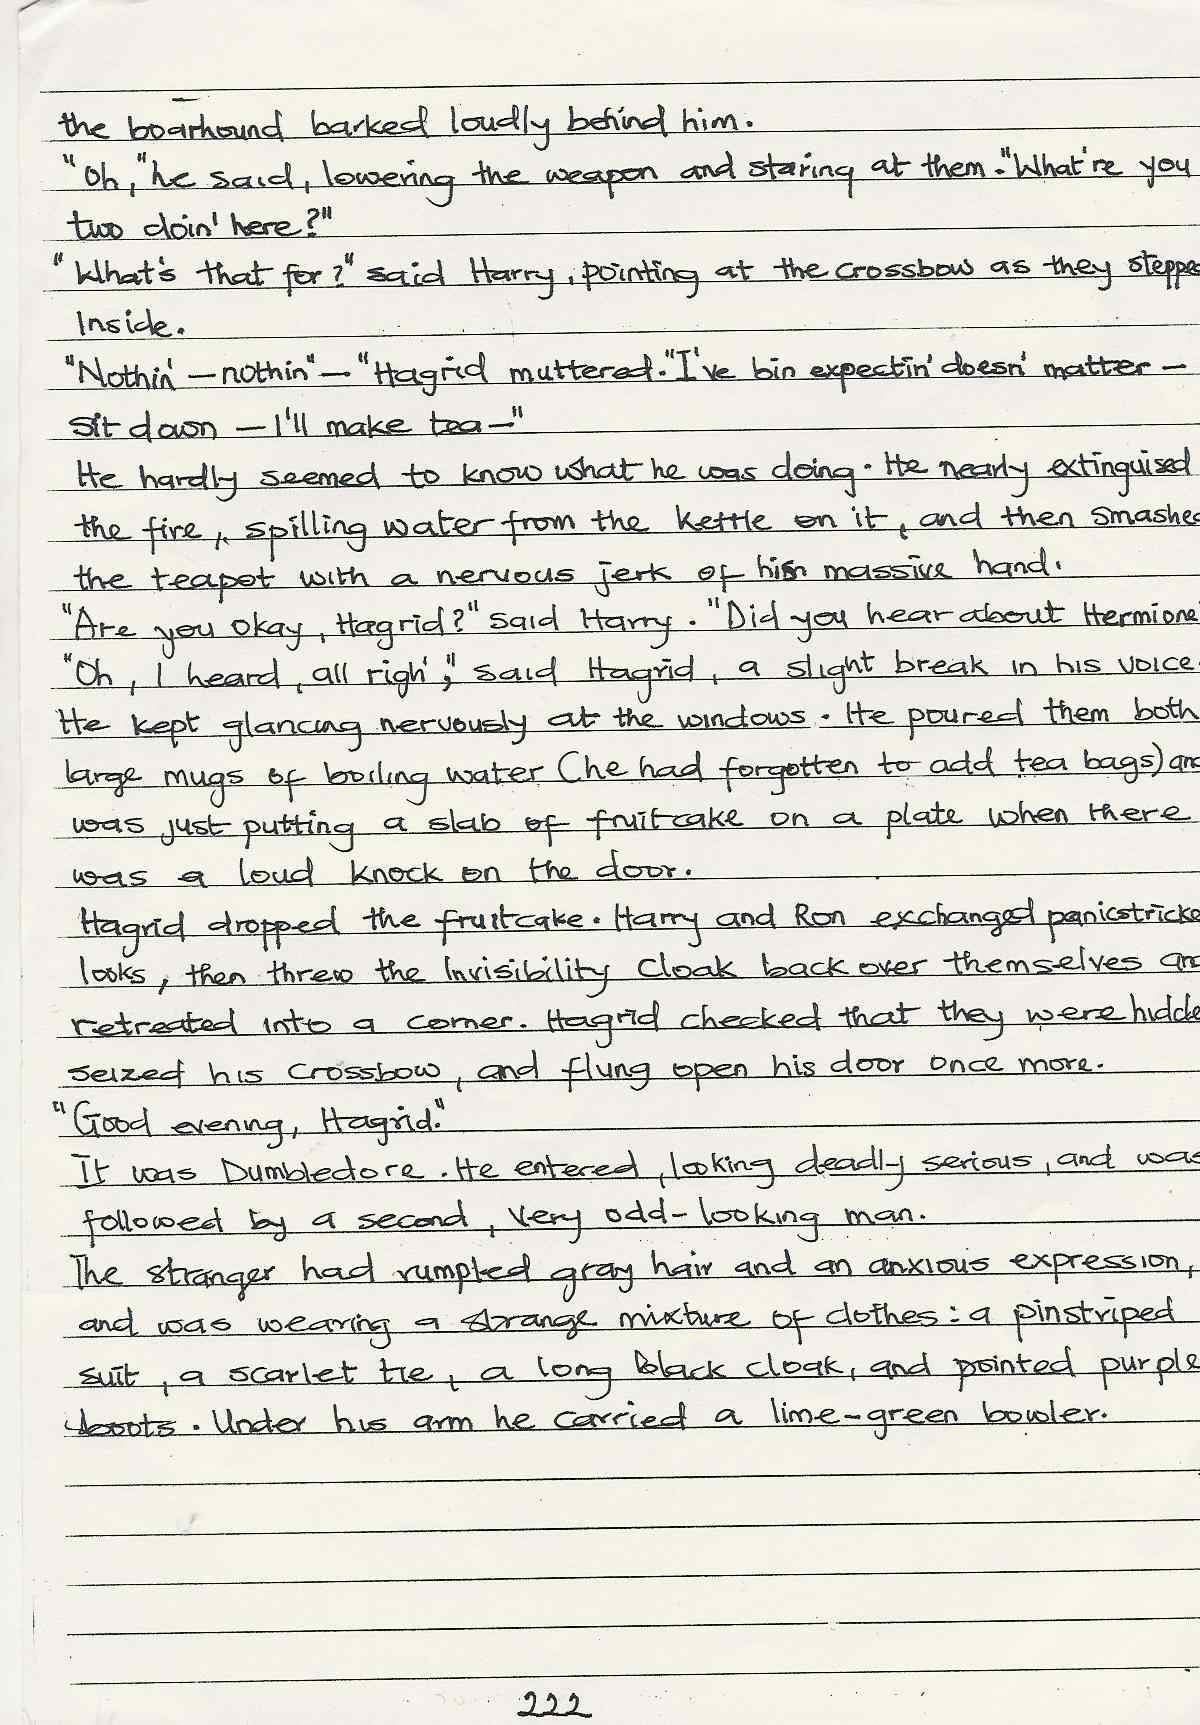 the boarhound barked loudly behind him.
"Oh," he said, lowering the weapon and staring at them. "What're you
two doin' here?"
"What's that for?" said Harry, pointing at the crossbow as they steppe
Inside.
"Nothin' — nothin" — "Hagrid muttered. "I've bin expectin' doesn' matter —
Sit down — I'll make tea —"
He hardly seemed to know what he was doing. He nearly extinguised
the fire, spilling water from the kettle on it, and then smashe
the teapot with a nervous jerk of his massive hand.
"Are you okay, Hagrid?" said Harry. "Did you hear about Hermione
"Oh, I heard, all righ'," said Hagrid, a slight break in his voice.
He kept glancing nervously at the windows. He poured them both
large mugs of boiling water (he had forgotten to add tea bags) an
was just putting a slab of fruitcake on a plate when there
was a loud knock on the door.
Hagrid dropped the fruitcake. Harry and Ron exchanged panicstricke
looks, then threw the Invisibility Cloak back over themselves an
retreated into a corner. Hagrid checked that they were hidde
seized his crossbow, and flung open his door once more.
"Good evening, Hagrid."
It was Dumbledore. He entered, looking deadly serious, and was
followed by a second, very odd-looking man.
The stranger had rumpled gray hair and an anxious expression,
and was wearing a strange mixture of clothes: a pinstriped
suit, a scarlet tie, a long black cloak, and pointed purple
boots. Under his arm he carried a lime-green bowler.
222